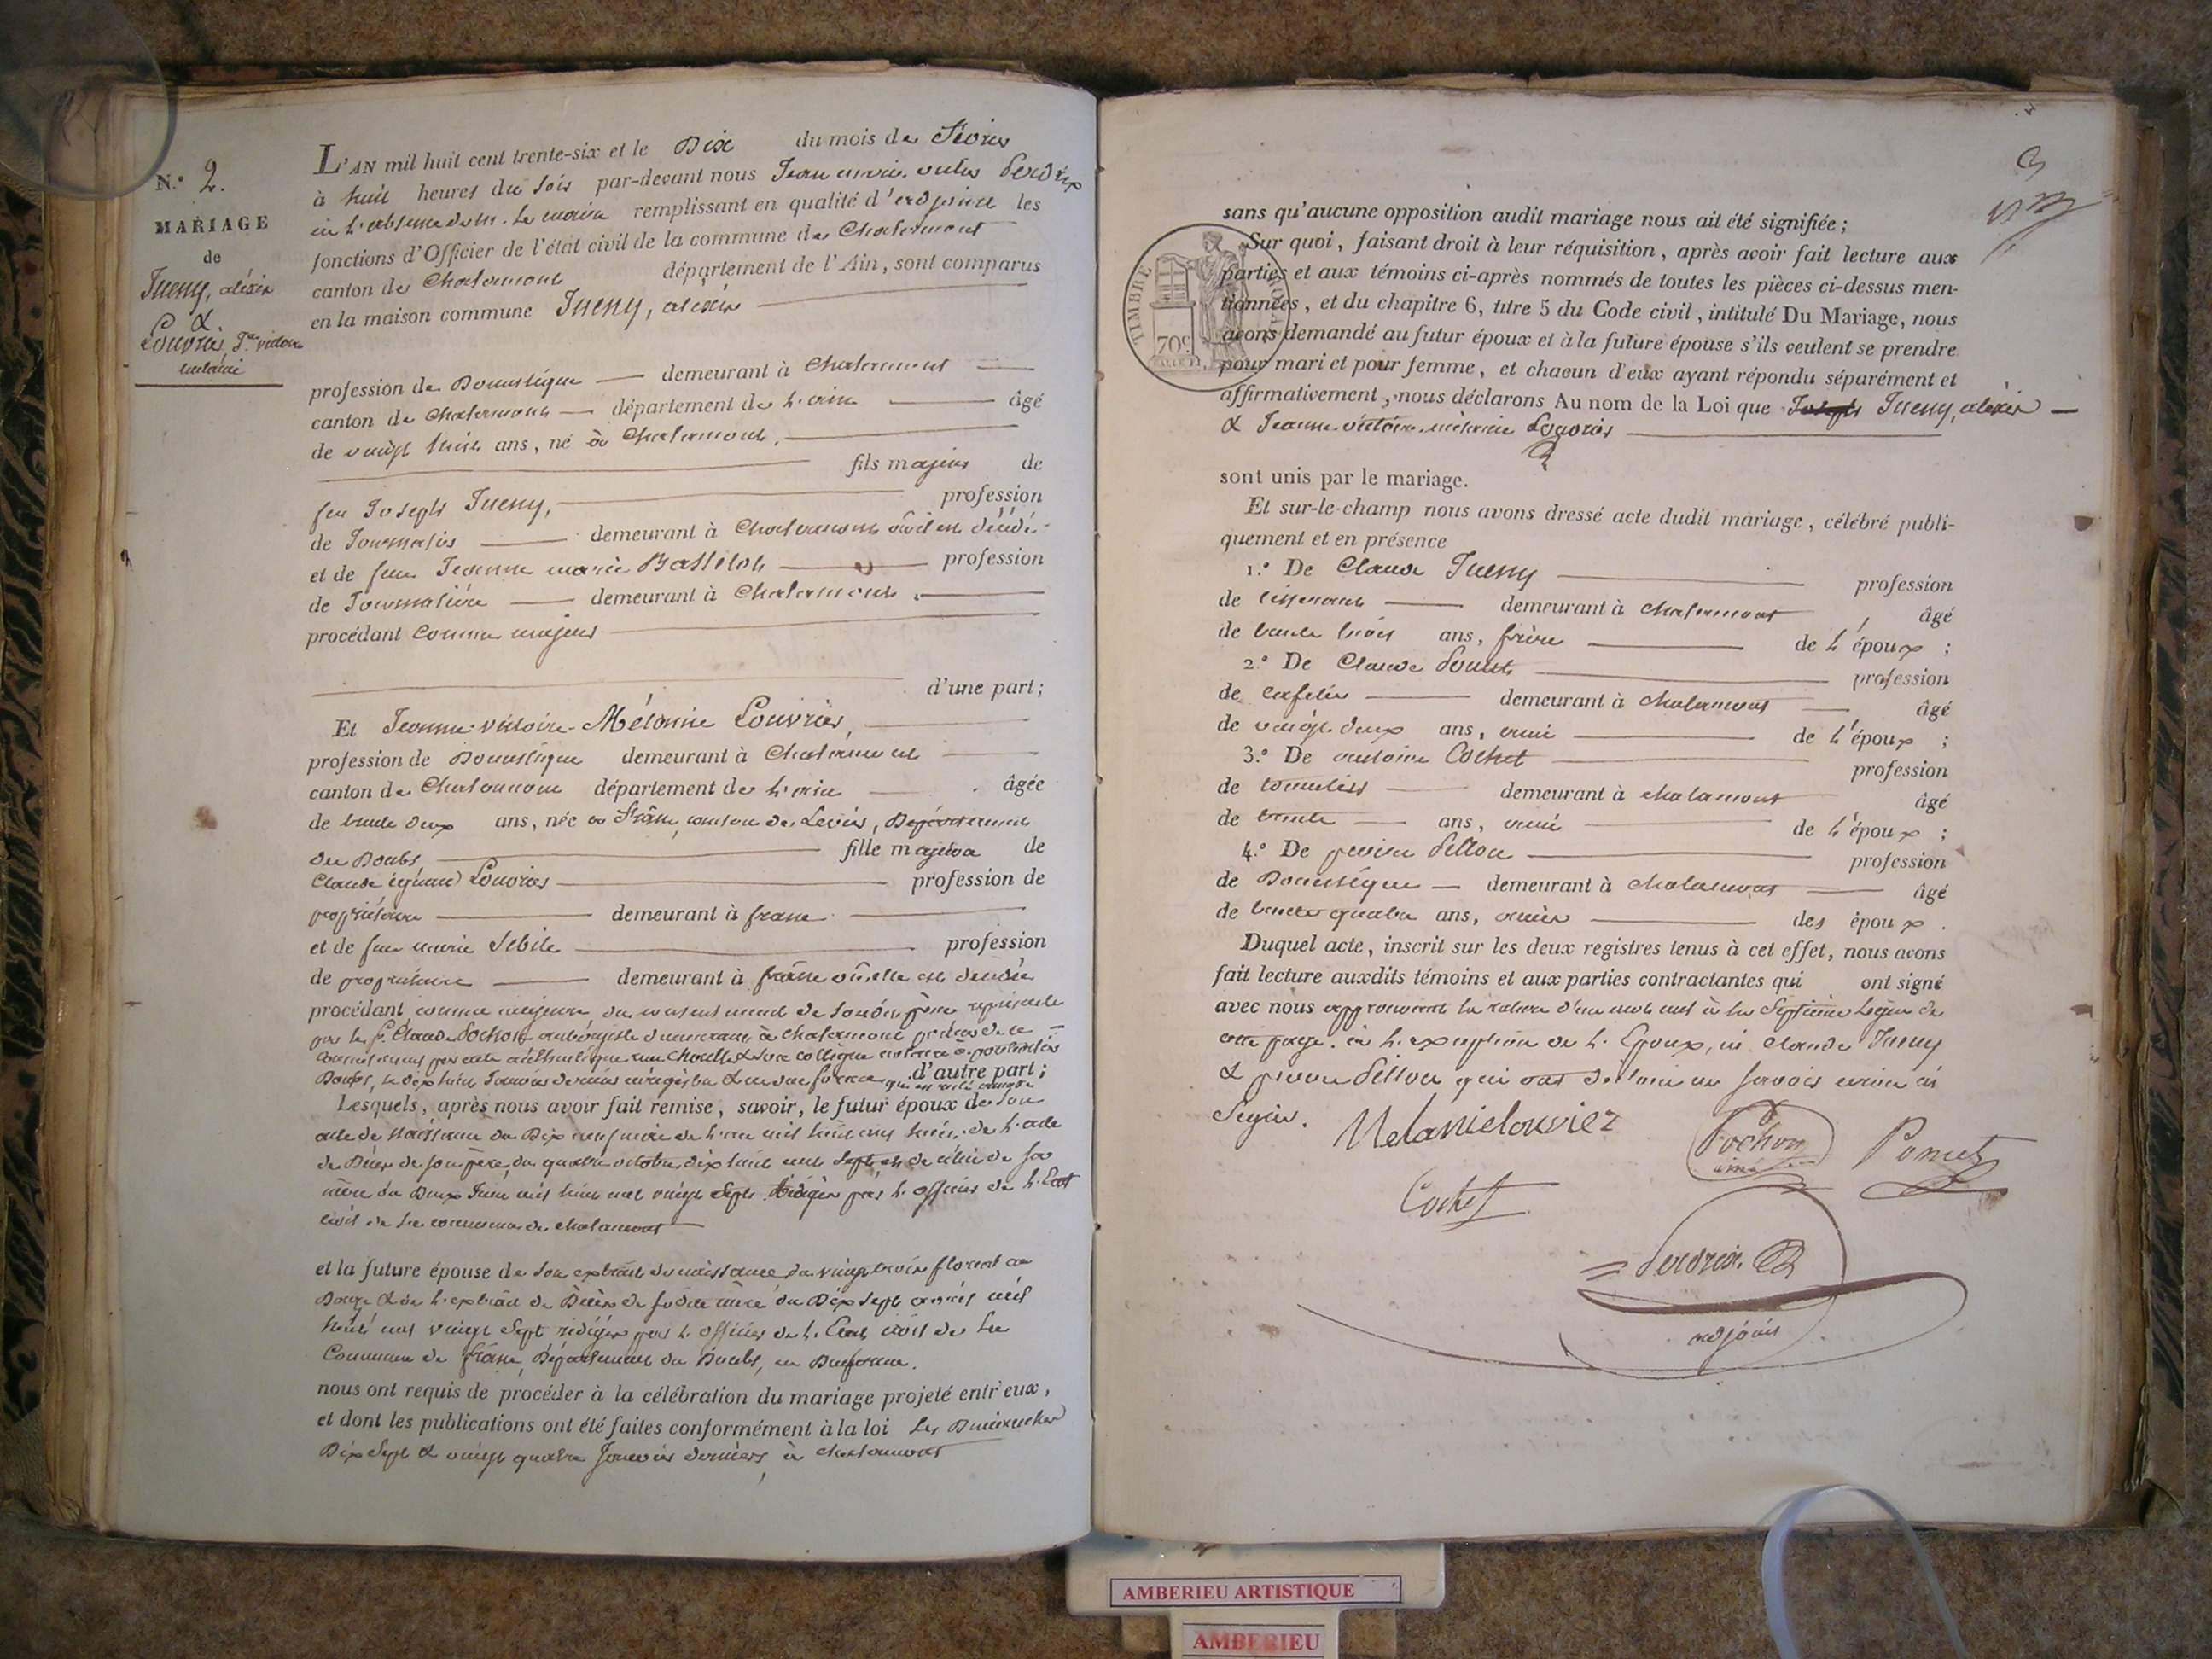 N.º 2.
MARIAGE
de
Jueny, aléxis
&
Louvrier, J.ne victoire
mélanie
L'AN mil huit cent trente-six et le Dix du mois de Février
à huit heures du soir par-devant nous Jean marie Perdrix
en l'absence de M. le maire remplissant en qualité d'adjoint les
fonctions d'Officier de l'état civil de la commune de Chalamont
canton de Chalamont département de l'Ain, sont comparus
en la maison commune Jueny, aléxis
profession de Domestique demeurant à Chalamont
canton de Chalamont département de l'ain âgé
de vingt huit ans, né à Chalamont,
fils majeur de
feu Joseph Jueny, profession
de Journalier demeurant à Chalamont où il est décédé
et de feue Jeanne marie profession
de Journalière demeurant à Chalamont
procédant comme majeur
d'une part;
Et Jeanne-victoire-Mélanie Louvrier,
profession de Domestique demeurant à Chalamont
canton de Chalamont département de l'ain âgée
de trente deux ans, née à canton de Levier, Département
du Doubs fille majeure de
Claude ignace Louvrier profession de
propriétaire demeurant à
et de feue marie Sebile profession
de propriétaire demeurant à où elle est décédée
procédant comme majeure, du consentement de son père représenté
par le S. Claude Pochon aubergiste demeurant à Chalamont
d'autre part;
Lesquels, après nous avoir fait remise, savoir, le futur époux de son
acte de Naissance du Dix neuf de l'an mil huit cent huit, de l'acte
de Décès de son père, du quatre octobre dix huit cent sept, et de celui de sa
mère du Deux Juin mil huit cent vingt sept Rédigés par l'officier de l'Etat
civil de la commune de chalamont
et la future épouse de son extrait de naissance du vingt trois floréal an
Douze & de l'extrait de Décès de sa dite mère du Dix sept mil
huit cent vingt sept rédigés par l'officier de l'Etat civil de la
Commune de Département du Doubs, en Due forme.
nous ont requis de procéder à la célébration du mariage projeté entr'eux,
et dont les publications ont été faites conformément à la loi les Dimanches
Dix sept & vingt quatre Janvier derniers, à chalamont
3
TIMBRE ROYAL
70c
sans qu'aucune opposition audit mariage nous ait été signifiée;
Sur quoi, faisant droit à leur réquisition, après avoir fait lecture aux
parties et aux témoins ci-après nommés de toutes les pièces ci-dessus men-
tionnées, et du chapitre 6, titre 5 du Code civil, intitulé Du Mariage, nous
avons demandé au futur époux et à la future épouse s'ils veulent se prendre
pour mari et pour femme, et chacun d'eux ayant répondu séparément et
affirmativement, nous déclarons Au nom de la Loi que Joseph Jueny, aléxis
& Jeanne-victoire-mélanie Louvrier
sont unis par le mariage.
Et sur-le-champ nous avons dressé acte dudit mariage, célébré publi-
quement et en présence
1.º De Claude Jueny profession
de tisserand demeurant à chalamont, âgé
de trente trois ans, frère de l'époux;
2.º De Claude Ponut profession
de demeurant à chalamont âgé
de vingt-deux ans, ami de l'époux;
3.º De antoine Cochet profession
de demeurant à chalamont âgé
de trente ans, ami de l'époux;
4.º De pierre Pillon profession
de Domestique demeurant à chalamont âgé
de trente quatre ans, ami des époux.
Duquel acte, inscrit sur les deux registres tenus à cet effet, nous avons
fait lecture auxdits témoins et aux parties contractantes qui ont signé
avec nous approuvant la rature d'un mot nul à la Septième ligne de
cette page. à l'exception de l'Epoux, de Claude Jueny
& pierre Pillon qui ont dit ne savoir écrire ni
Signer.
Melanielouvriez
Pochon
aîné
Ponut
Cochet
Perdrix
adjoint
AMBERIEU ARTISTIQUE
AMBERIEU